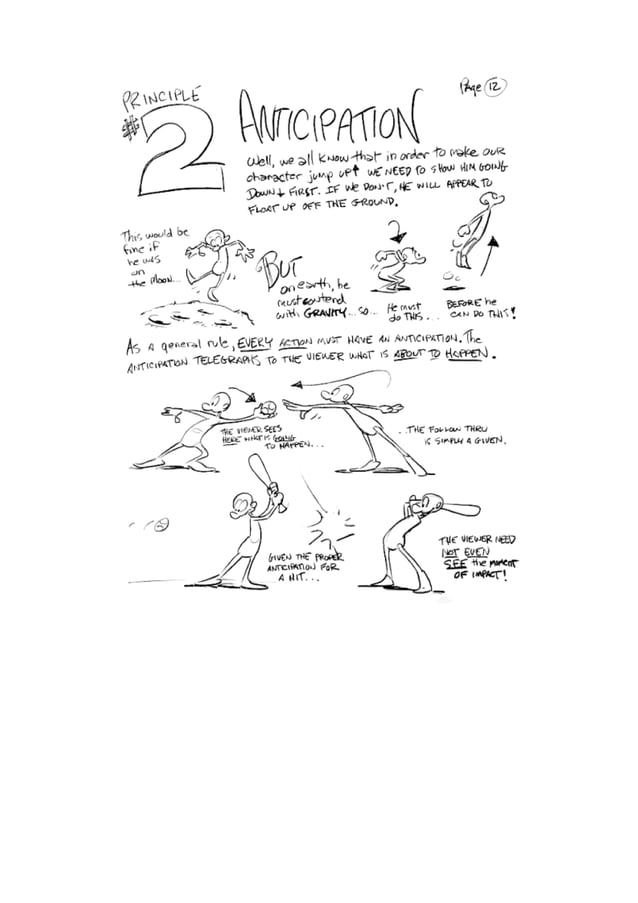 Page 12
PRINCIPLE
#2
ANTICIPATION
Well, we all know that in order to make our
character jump up↑ WE NEED TO SHOW HIM GOING
DOWN↓ FIRST. IF WE DON'T, HE WILL APPEAR TO
FLOAT UP OFF THE GROUND.
This would be
fine if
he was
on
the Moon...
BUT
on earth, he
must contend
with GRAVITY... SO...
He must
do THIS...
BEFORE he
CAN DO THIS!
As a general rule, EVERY ACTION MUST HAVE AN ANTICIPATION. The
ANTICIPATION TELEGRAPHS TO THE VIEWER WHAT IS ABOUT TO HAPPEN.
THE VIEWER SEES
HERE WHAT IS GOING
TO HAPPEN...
..THE FOLLOW THRU
IS SIMPLY A GIVEN.
GIVEN THE PROPER
ANTICIPATION FOR
A HIT...
THE VIEWER NEED
NOT EVEN
SEE the moment
OF IMPACT!